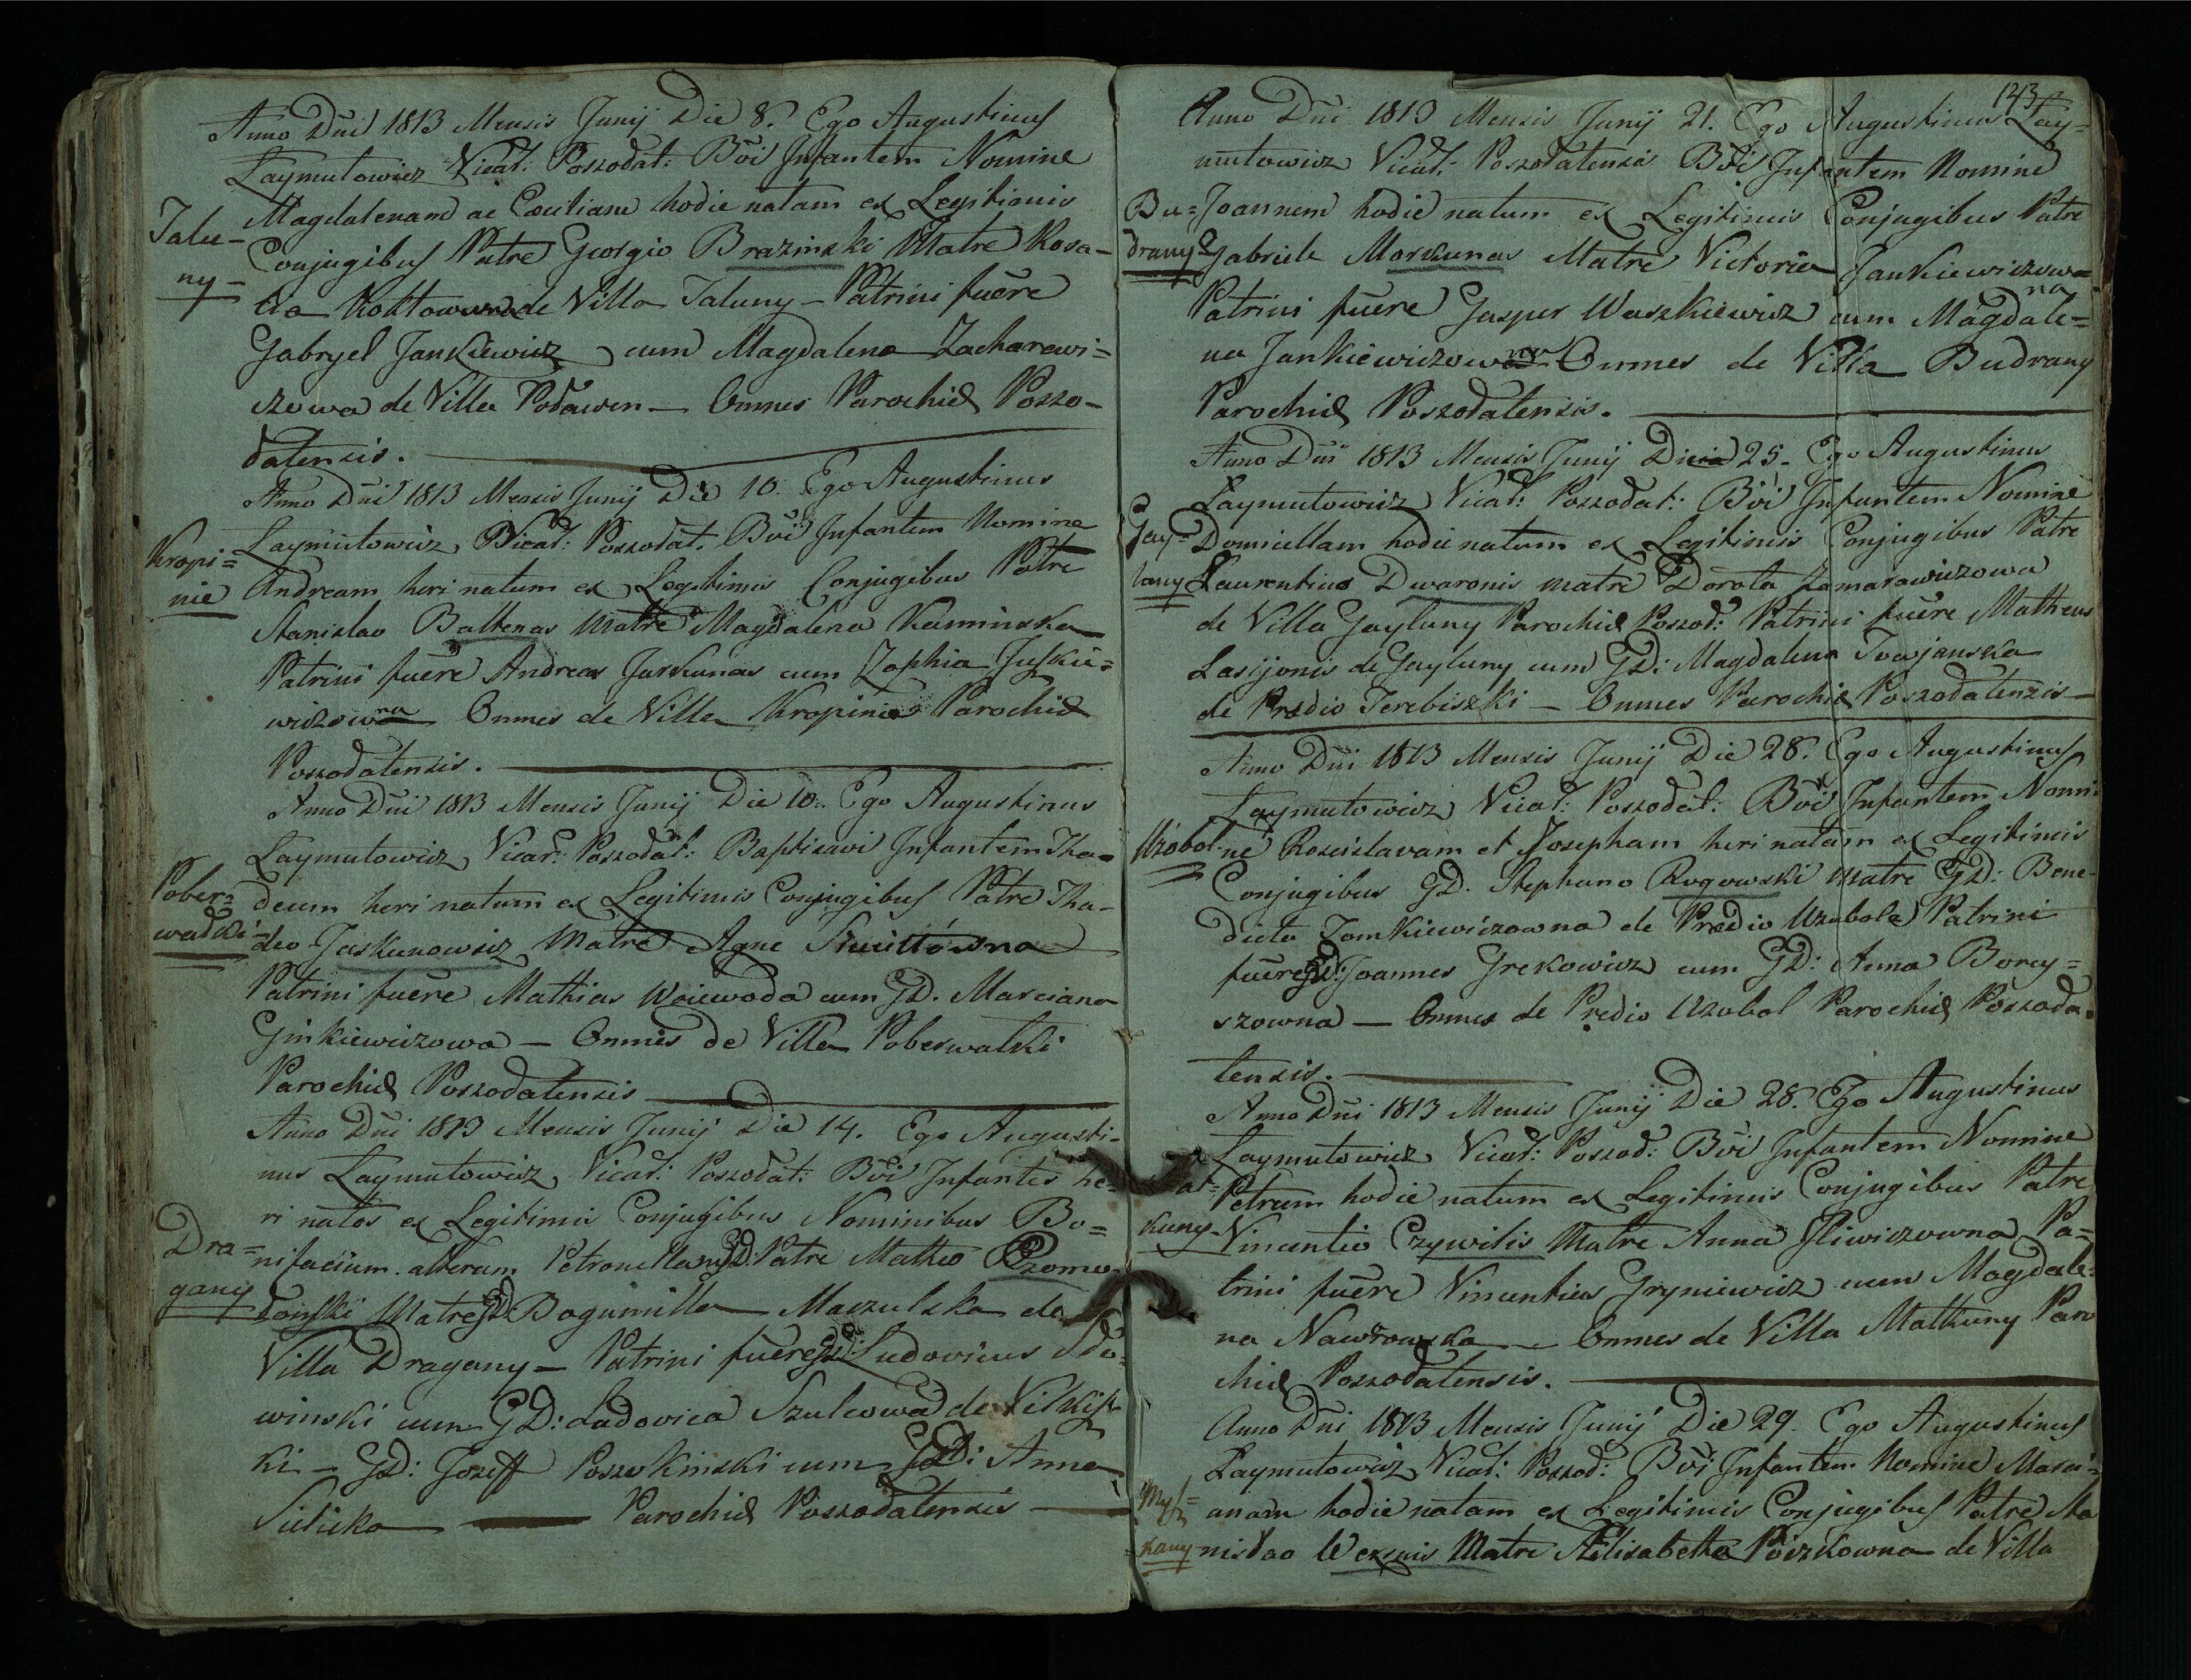 Anno Dni 1813 Mensis Junij Die 8. Ego Augustinus
Laymutowicz Vicar: Poszodat: Bvi Infantem Nomine
Talu- Magdalenam ac Caeciliam hodie natam ex Legitimis
ny- Conjugibus Patre Georgio Brazinski Matre Rosa-
lia de Villa Taluny - Patrini fuere
Gabryel Jankiewicz cum Magdalena Zacharewi=
czowa de Villa Podawen - Omnes Parochiæ Poszo-
datensis.
Anno Dni 1813 Mensis Junij Die 10. Ego Augustinus
Laymutowicz Vicar: Poszodat. Bvi Infantem Nomine
Kropi= nie Andream heri natum ex Legitimis Conjugibus Patre
Stanislao Baltenas Matre Magdalena Kaminska
Patrini fuere Andreas Juszkunas cum Zophia Juszkie=
wiczowna Omnes de Villa Kropinie Parochiæ
Poszodatensis.
Anno Dni 1813 Mensis Junij Die 10. Ego Augustinus
Laymutowicz Vicar: Poszodat: Baptisavi Infantem Tha=
Pober= deum heri natum ex Legitimis Conjugibus Patre Tha-
walki- deo Jaskunowicz Matre Agne
Patrini fuere Mathias Woiewoda cum GD. Marciana
Ginkiewiczowa - Omnes de Villa Poberwalki
Parochiæ Poszodatensis
Anno Dni 1813 Mensis Junij Die 14. Ego Augusti-
nus Laymutowicz Vicar: Poszodat: Bvi Infantes he-
ri natos ex Legitimis Conjugibus Nominibus Bo=
Dra= nifacium alteram Petronellam GD: Patre Matheo
gany Matre GD: Bogumilla Maczulska de
Villa Dragany - Patrini fuere GD: Ludovicus
winski cum GD: Ludovica Szulcowa de
ki - GD: Jozeff cum GD: Anna
Parochiæ Poszodatensis
123
Anno Dni 1813 Mensis Junij 21. Ego Augustinus Lay=
mutowicz Vicar: Poszodatensis Bvi Infantem Nomine
Bu= Joannem hodie natum ex Legitimis Conjugibus Patre
drany Gabriele Morkunas Matre Victoria Jankiewiczowna
Patrini fuere Gasper Waszkiewicz cum Magdale=
na Jankiewiczowna Omnes de Villa Budrany
Parochiæ Poszodatensis.
Anno Dni 1813 Mensis Junij Die 25. Ego Augustinus
Laymutowicz Vicar: Poszodat: Bvi Infantem Nomine
Gay= Domicellam hodie natam ex Legitimis Conjugibus Patre
luny Laurentius Dwaronis Matre Dorota
de Villa Gayluny Parochiæ Poszod: Patrini fuere Matheus
Lasijonis de Gayluny cum GD: Magdalena Towjanska
de Prædio Terebiszki - Omnes Parochiæ Poszodatensis
Anno Dni 1813 Mensis Junij Die 28. Ego Augustinus
Laymutowicz Vicar: Poszodat: Bvi Infantem Nomi-
Uzobol ne Roscislavam et Josepham heri natam ex Legitimis
Conjugibus GD. Stephano Rogowski Matre GD: Bene-
dicta Tomkiewiczowna de Prædio Uzubole Patrini
fuere GD: Joannes Grekowicz cum GD: Anna Borey=
szowna - Omnes de Predio Uzobol Parochiæ Poszoda-
tensis.
Anno Dni 1813 Mensis Junij Die 28. Ego Augustinus
Laymutowicz Vicar: Poszod: Bvi Infantem Nomine
Petrum hodie natum ex Legitimis Conjugibus Patre
kuny- Vincentio Czywilis Matre Anna Iliwiczowna Pa=
trini fuere Vincentius Gryniewicz cum Magdale-
na Omnes de Villa Matkuny Paro
chiæ Poszodatensis.
Anno Dni 1813 Mensis Junij Die 29. Ego Augustinus
Laymutowicz Vicar: Poszod: Bvi Infantem Nomine Marci=
Mysz= anam hodie natam ex Legitimis Conjugibus Patre Sta
kuny- nislao Matre Elisabetha de Villa